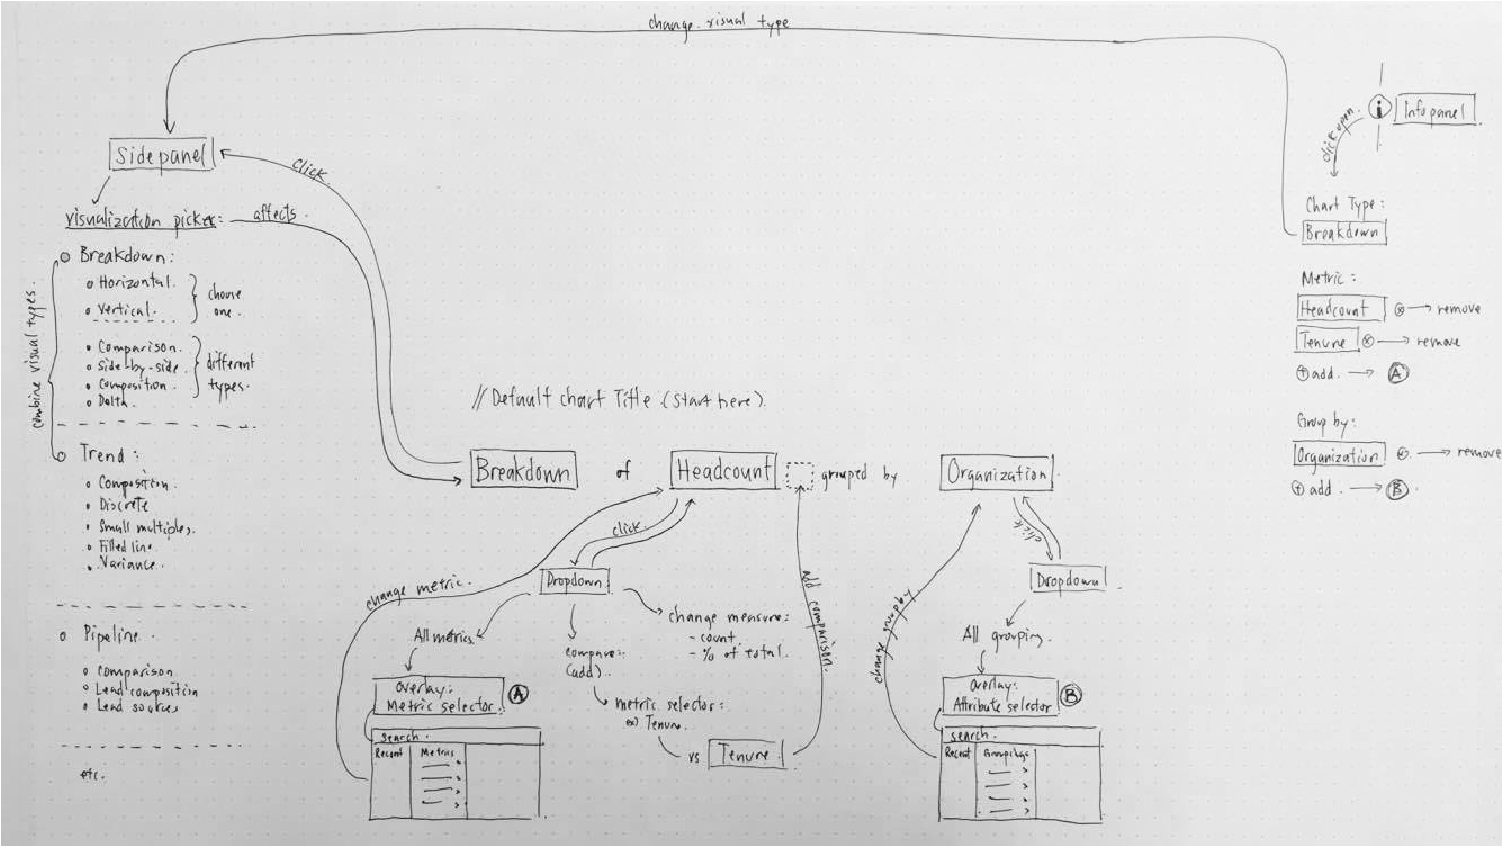 change visual type
Side panel
click.
visualization picker:
affects.
combine visual types.
Breakdown:
Horizontal.
Vertical.
choose
one.
Comparison.
Side-by-side.
Composition.
Delta.
different
types.
Trend:
Composition.
Discrete
Small multiples.
Filled line.
Variance.
Pipeline.
Comparison
Lead composition
Lead sources
etc.
// Default chart Title.(Start here).
Breakdown of Headcount grouped by Organization
click.
change metric.
Dropdown
All metrics.
compare:
(add).
change measure:
- count.
- % of total.
metric selector:
ex) Tenure.
vs Tenure
add comparison.
Overlay:
Metric selector.
A
Search.
Recent Metrics
click
Dropdown
change groupby
All grouping.
Overlay:
Attribute selector
B
Search.
Recent Groupings
i Info panel
click upon.
Chart Type:
Breakdown
Metric:
Headcount ⊗ → remove
Tenure ⊗ → remove
⊕ add. → A
Group by:
Organization ⊗ → remove
⊕ add → B.